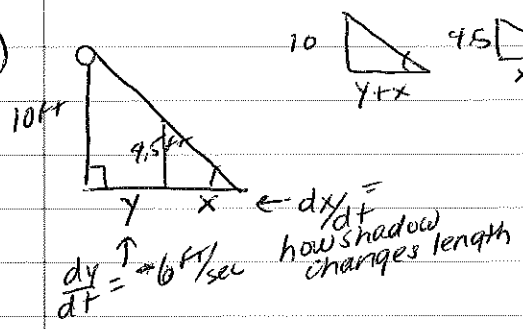 )
10
y+x
4.5
x
10ft
4.5ft
y x ← dx/dt =
how shadow
changes length
↑
dy/dt = -6 ft/sec